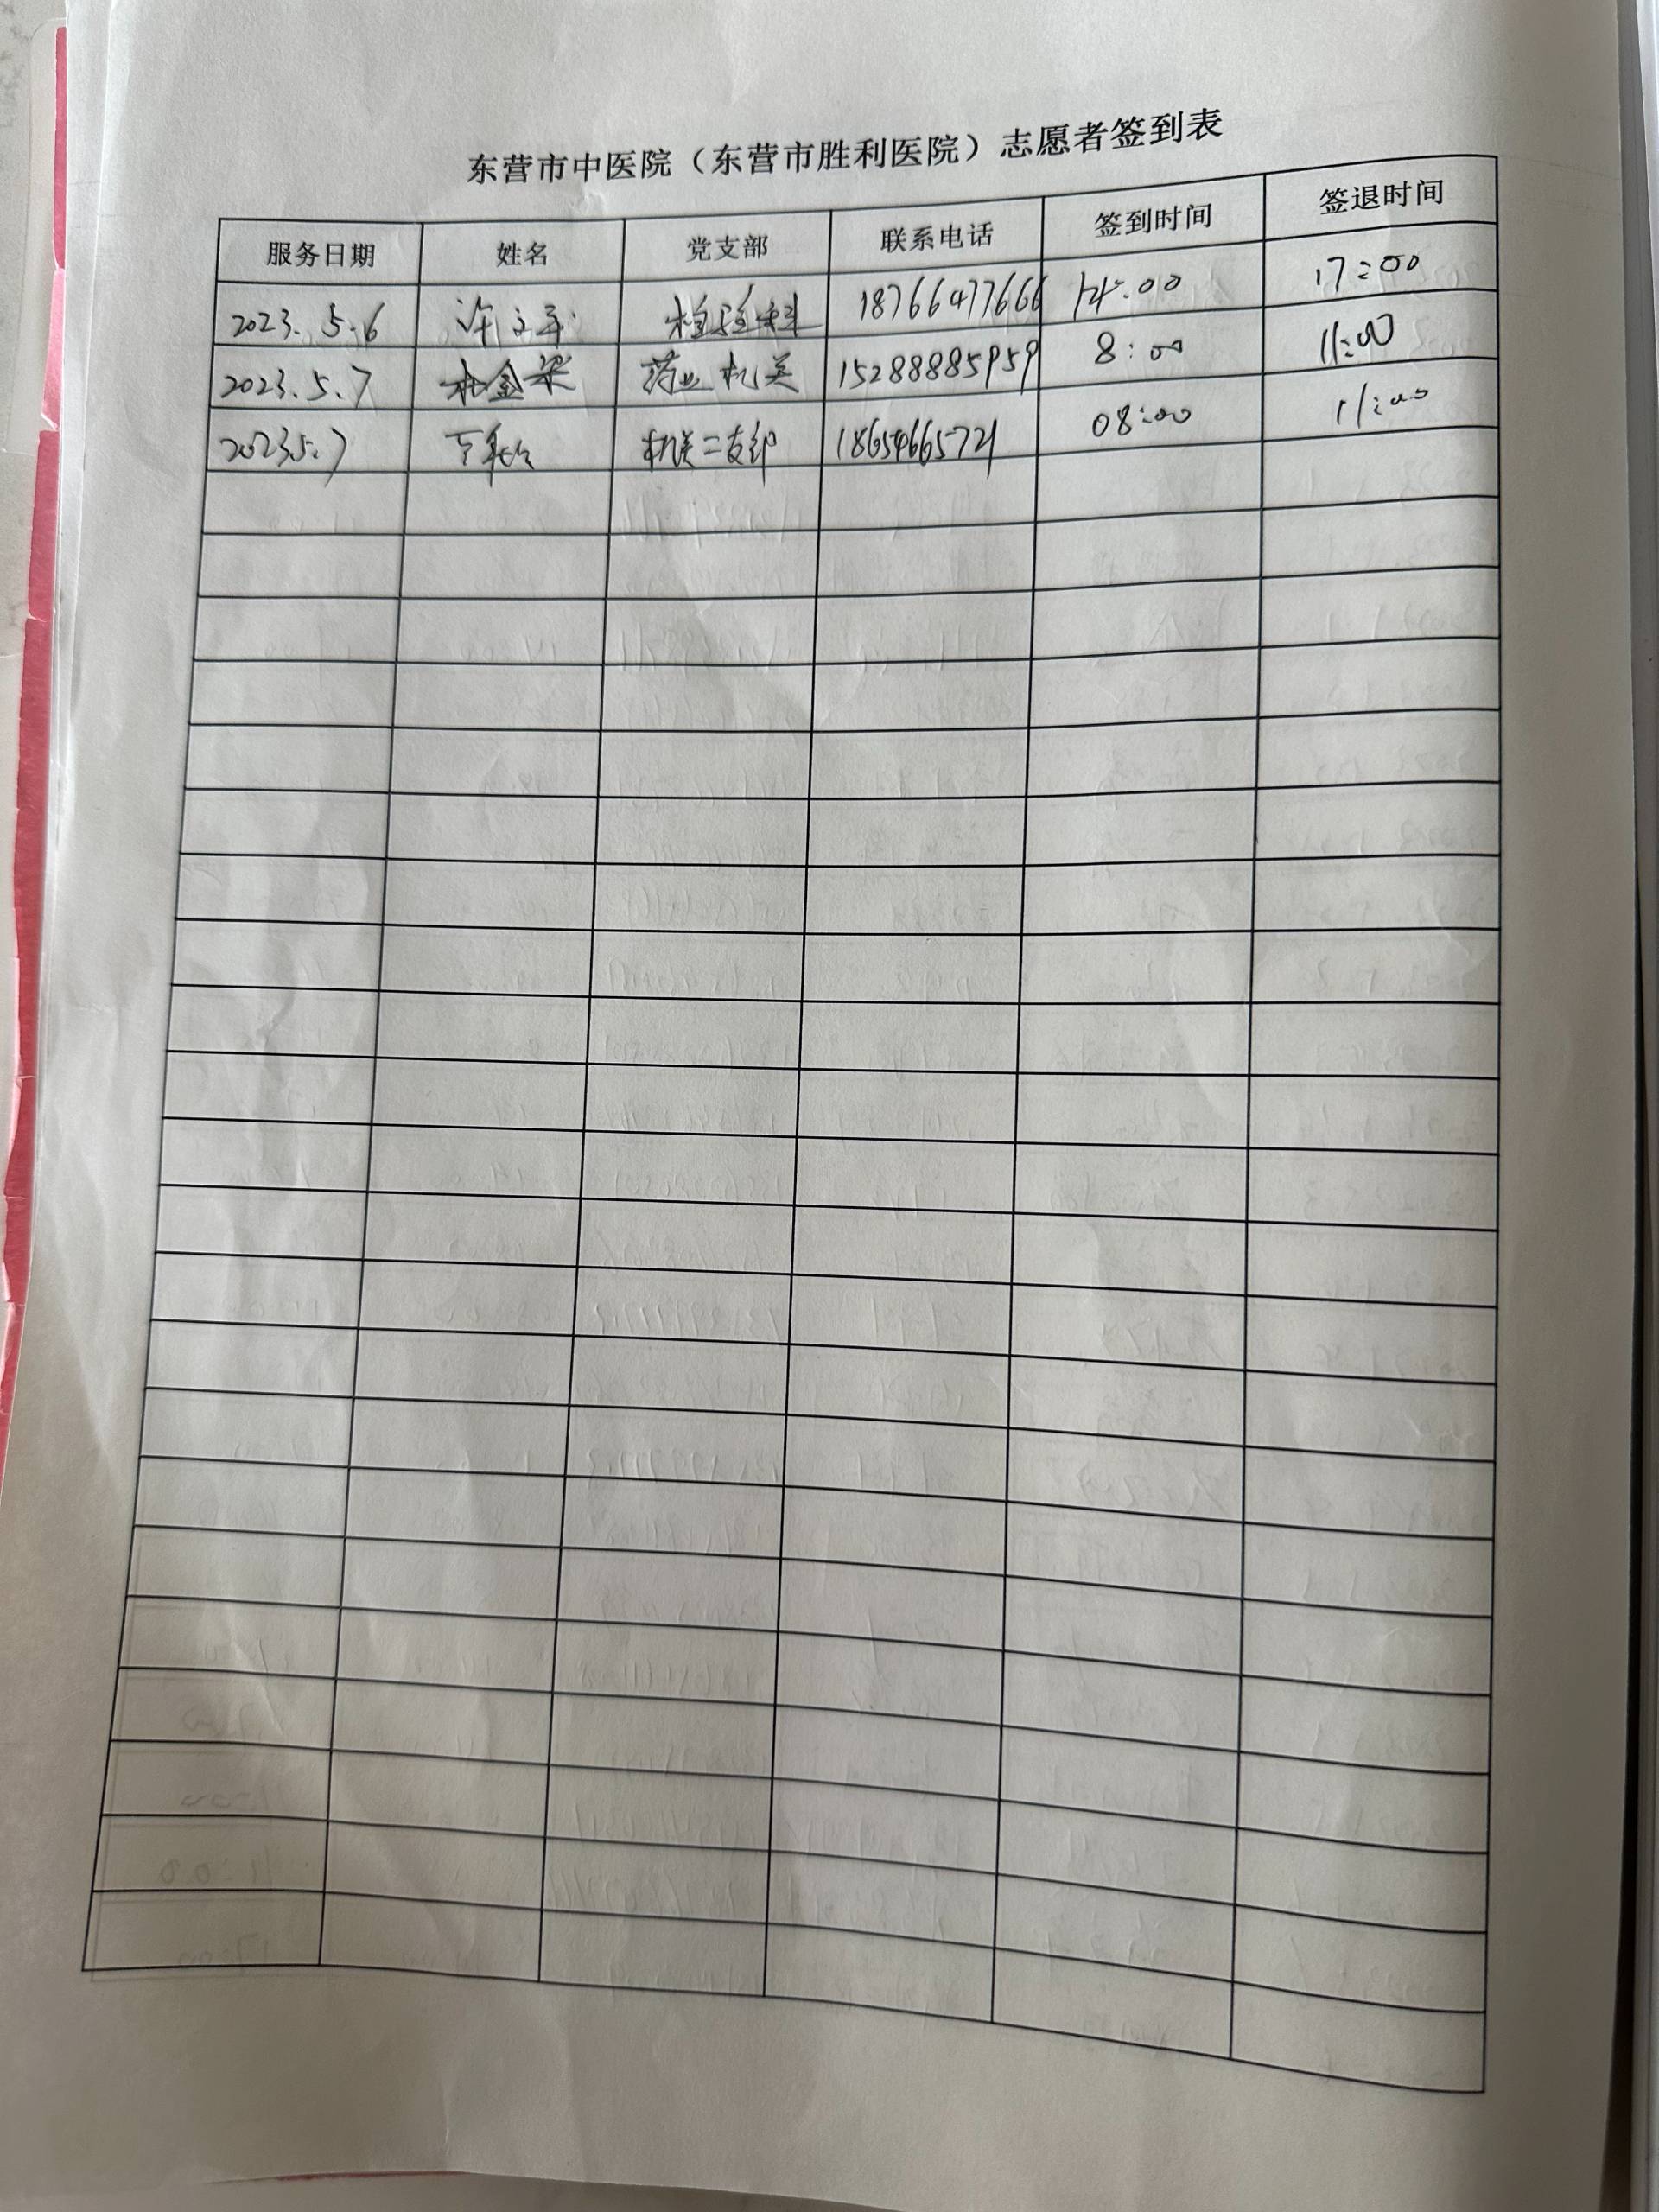 东营市中医院（东营市胜利医院）志愿者签到表
服务日期 姓名 党支部 联系电话 签到时间 签退时间
2023.5.6 许文 检验科 18766477666 14:00 17:00
2023.5.7 杜金梁 药业机关 15288885959 8:00 11:00
2023.5.7 机关二支部 18654665721 08:00 11:00